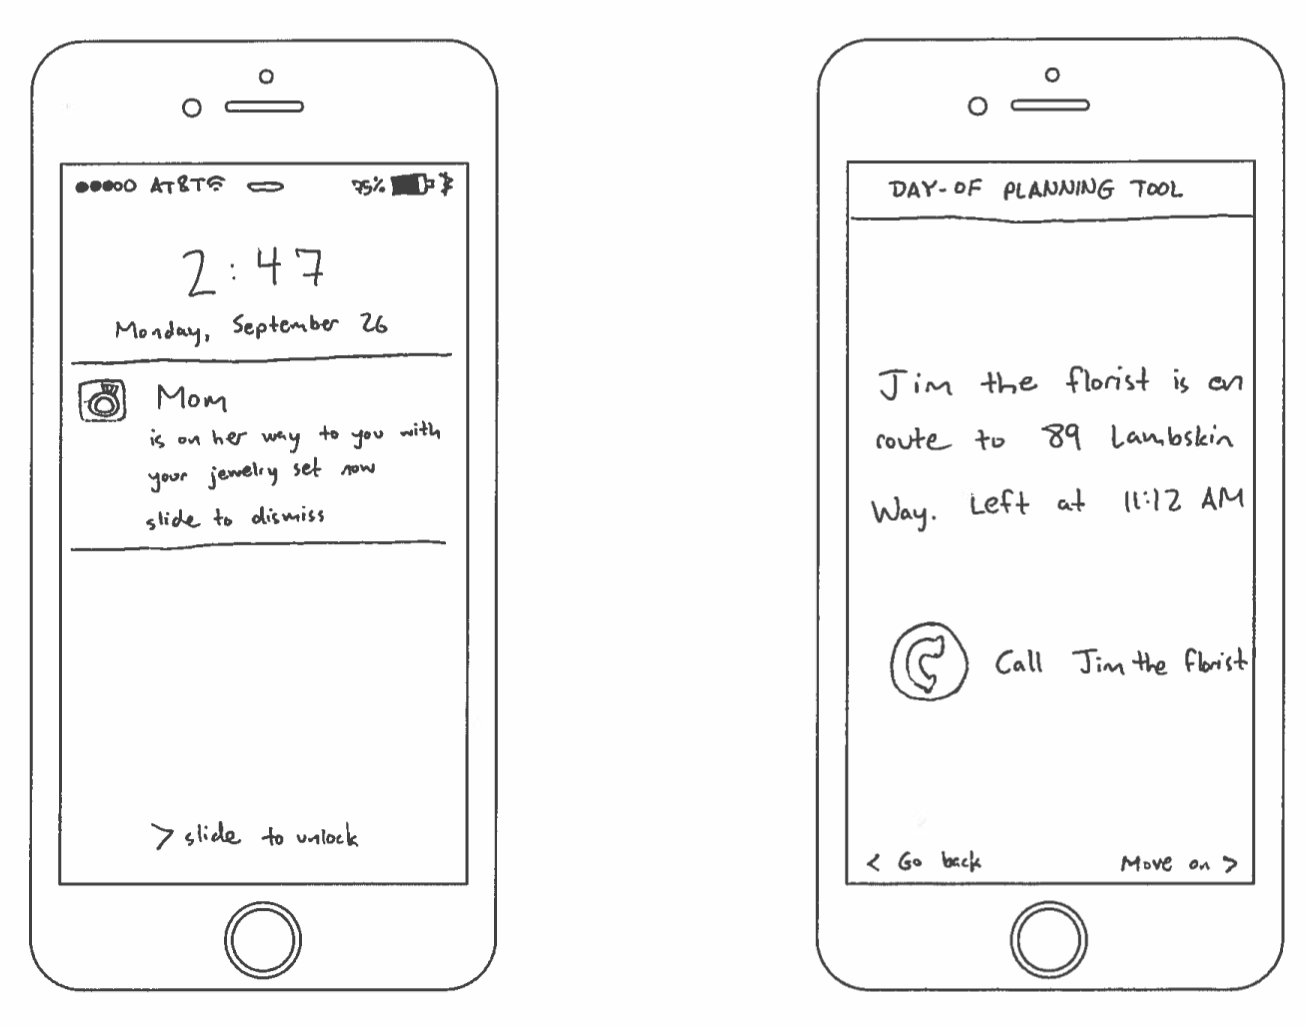 AT&T 75%
2:47
Monday, September 26
Mom
is on her way to you with
your jewelry set now
slide to dismiss
> slide to unlock
DAY-OF PLANNING TOOL
Jim the florist is en
route to 89 Lambskin
Way. Left at 11:12 AM
Call Jim the florist
< Go back Move on >